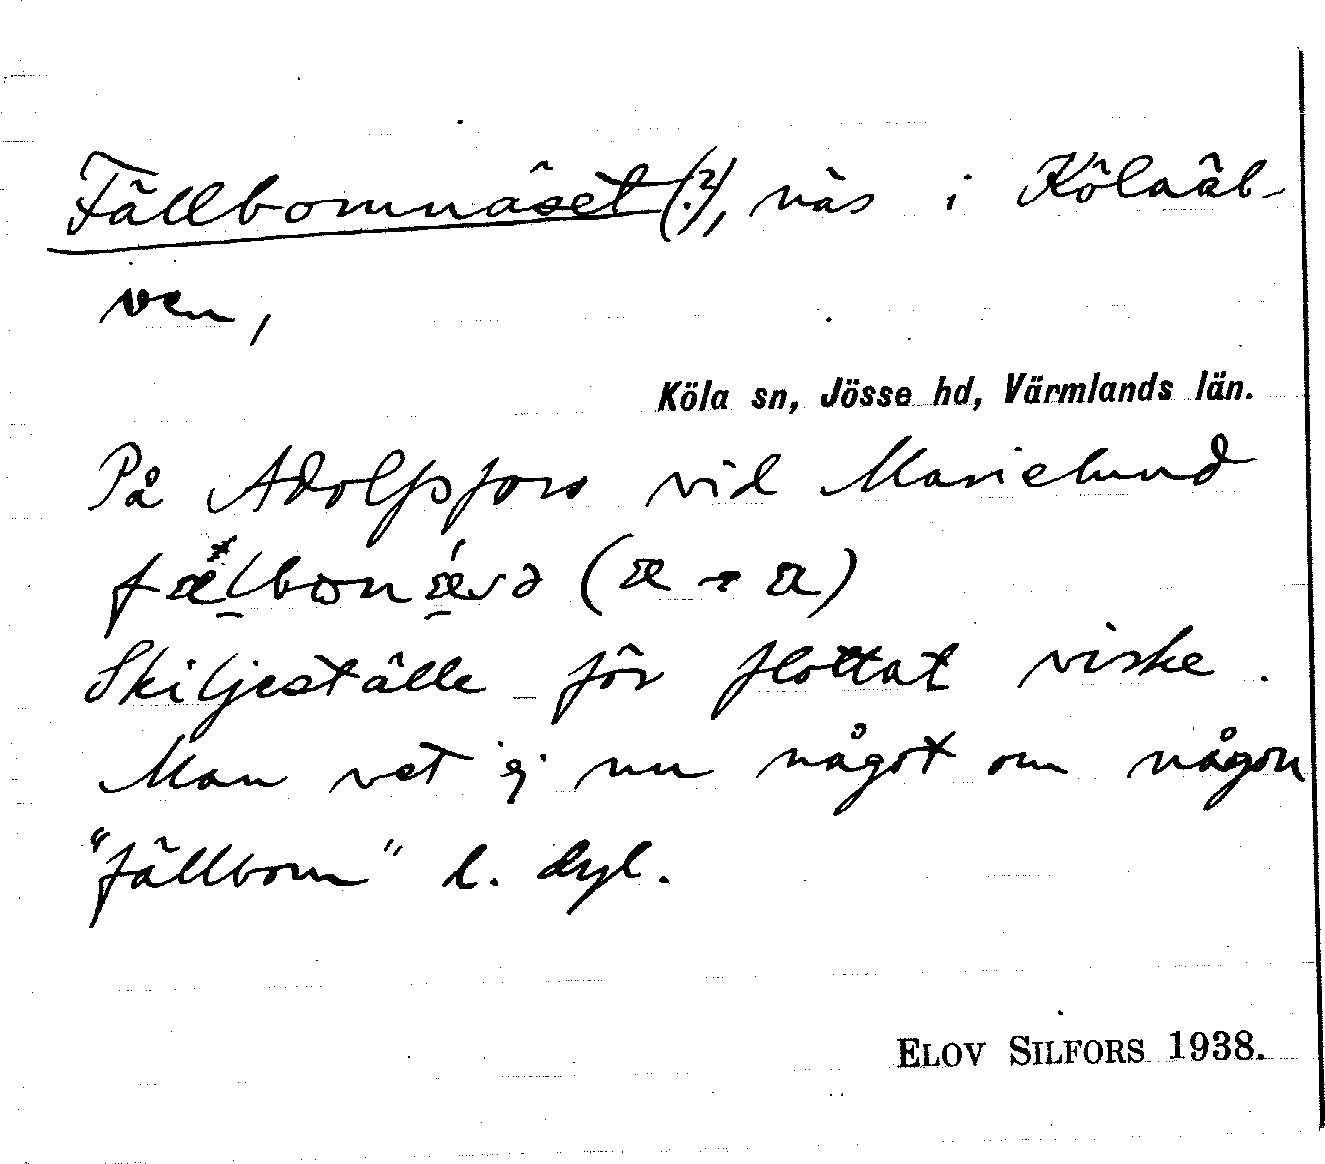 Fällbomnäset (?), näs i Kölaäl-
ven,
Köla sn, Jösse hd, Värmlands län.
På Adolfsfors vid Marielund
Skiljeställe för flottat virke.
Man vet ej nu något om någon
"fällbom" l. dyl.
ELOV SILFORS 1938.